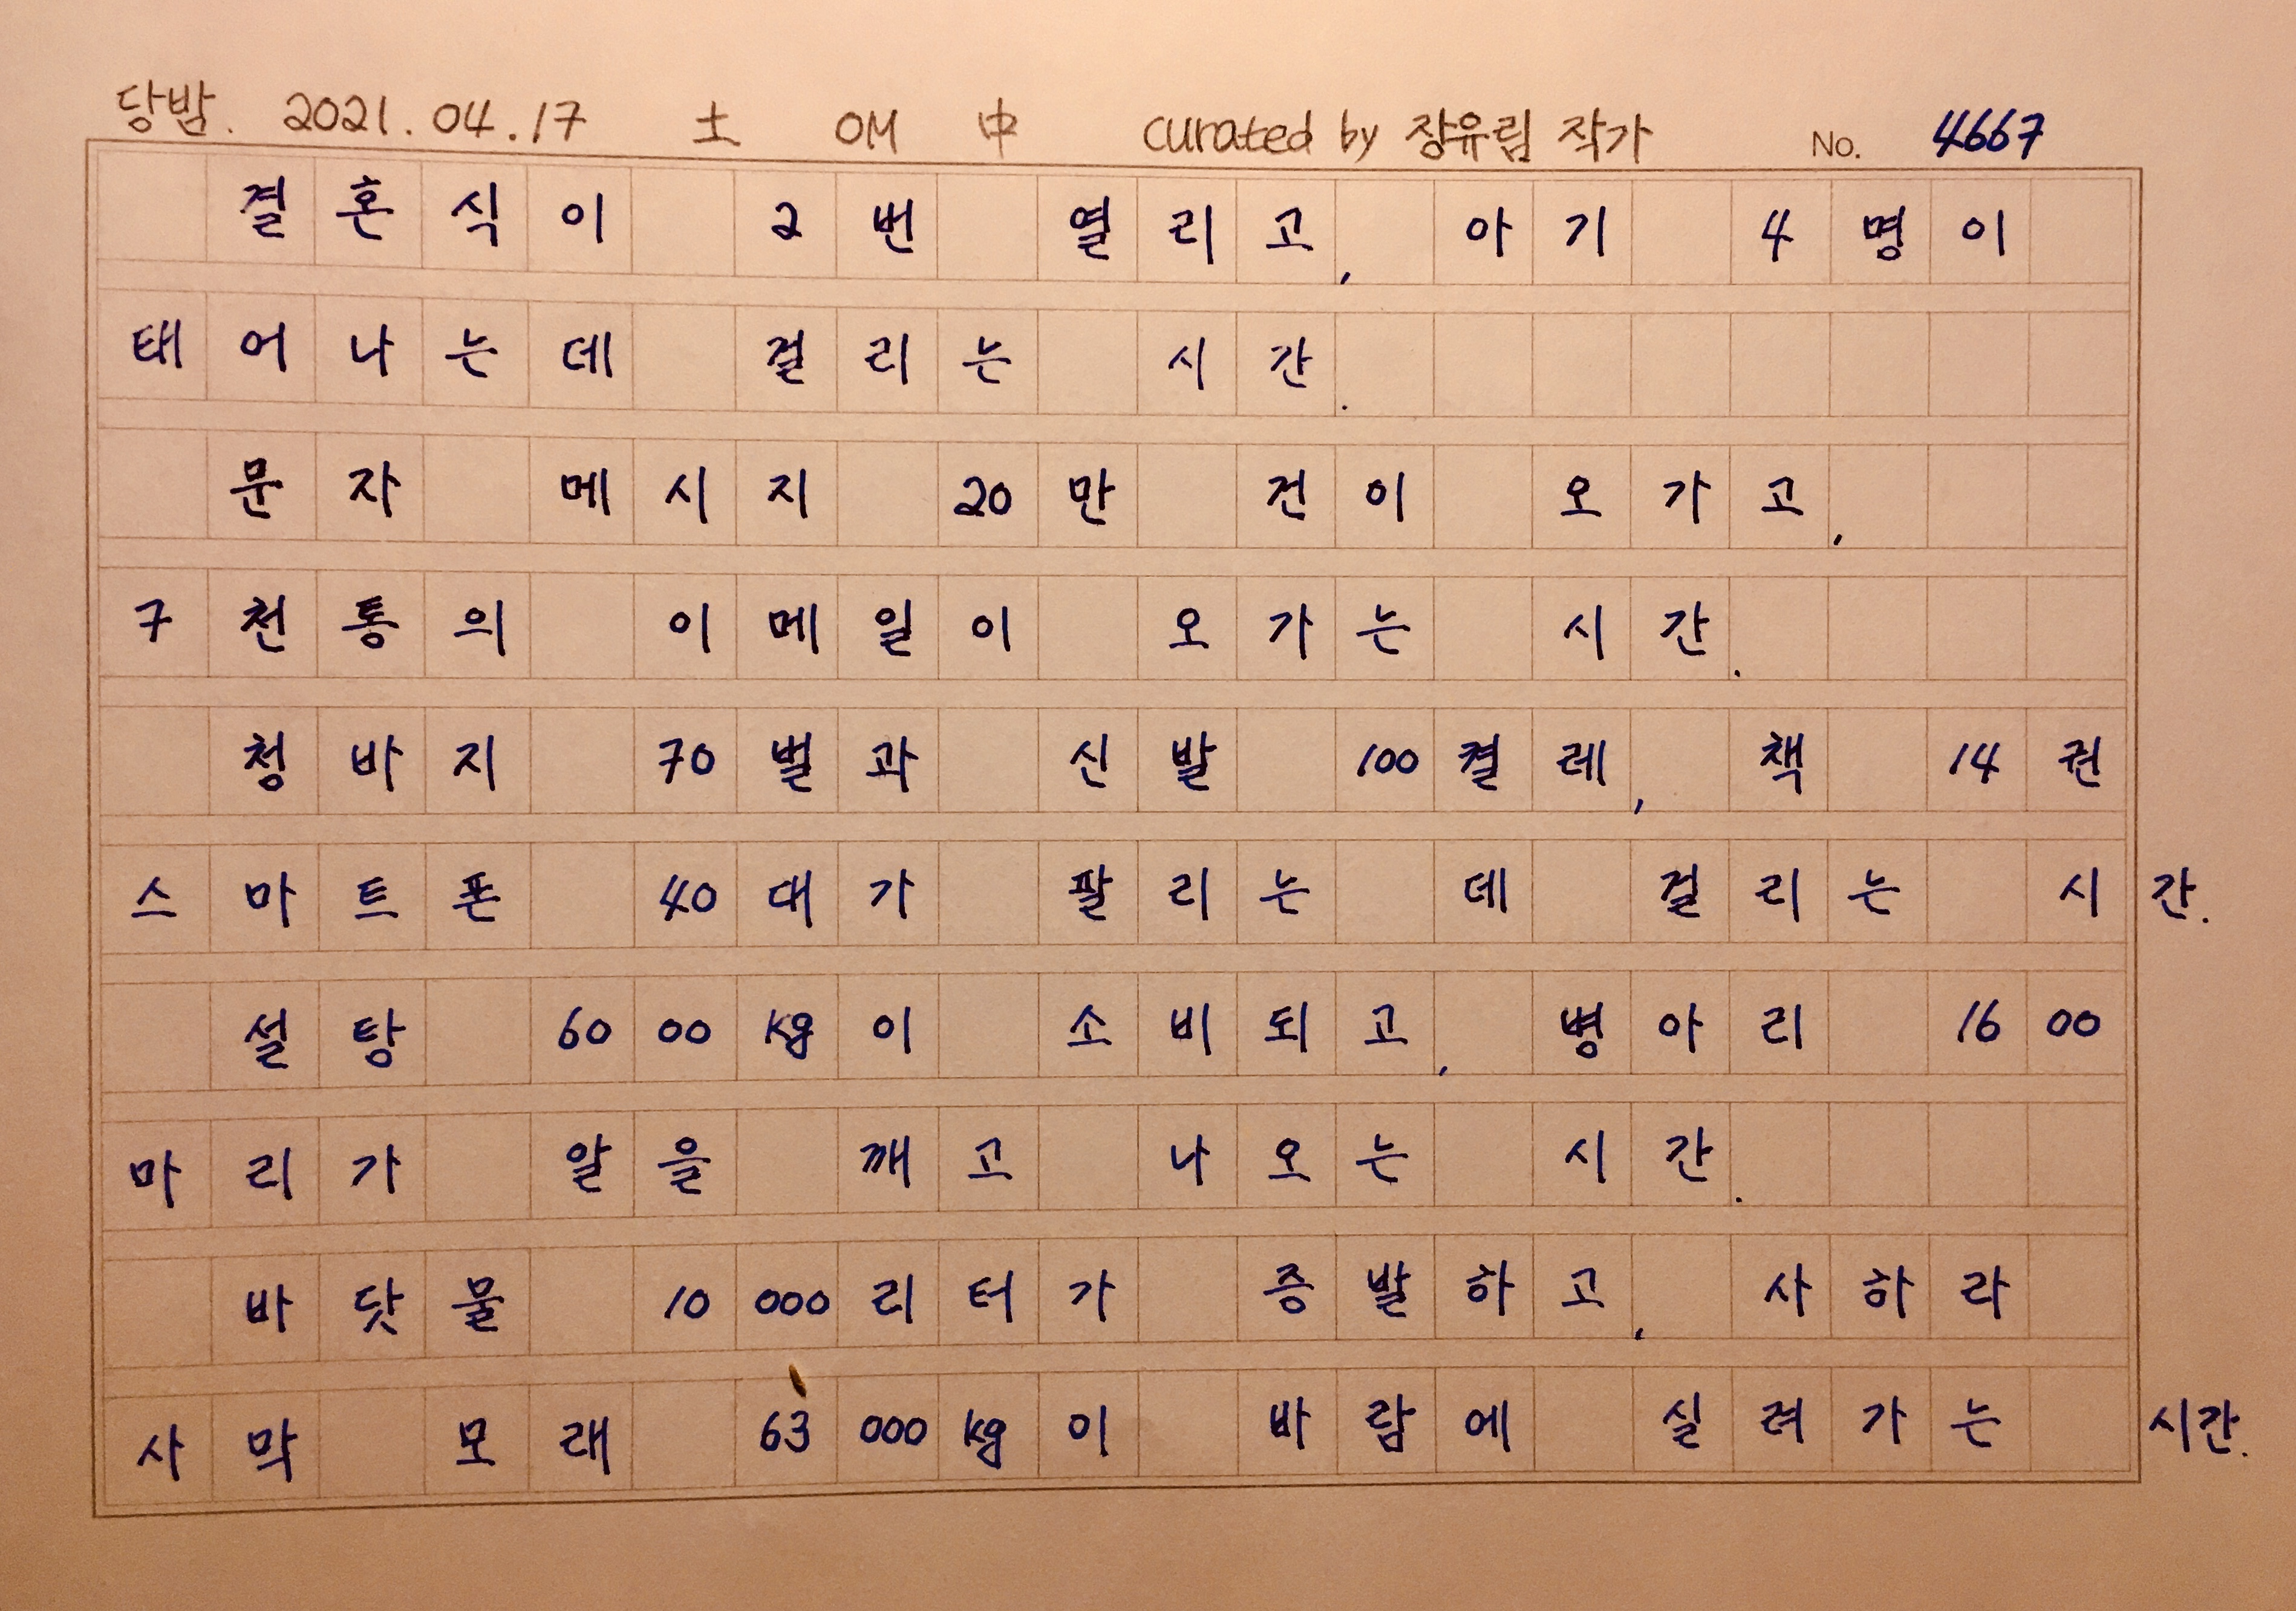 당밤. 2021.04.17 土 OM 中 curated by 장유림 작가 No. 4667
결혼식이 2번 열리고, 아기 4명이
태어나는데 걸리는 시간.
문자 메시지 20만 건이 오가고,
7천통의 이메일이 오가는 시간.
청바지 70벌과 신발 100켤레, 책 14권
스마트폰 40대가 팔리는 데 걸리는 시간.
설탕 6000kg이 소비되고, 병아리 1600
마리가 알을 깨고 나오는 시간.
바닷물 10000리터가 증발하고, 사하라
사막 모래 63000kg이 바람에 실려가는 시간.